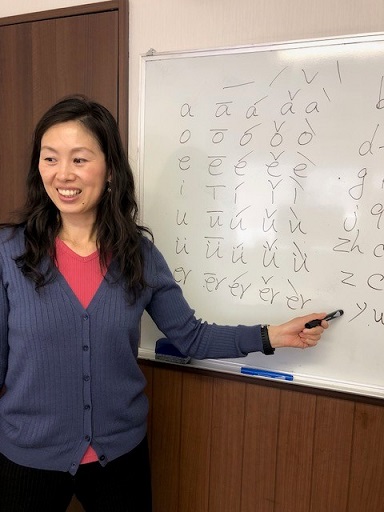 ˉ ˊ ˇ ˋ
a ā á ǎ à b
o ō ó ǒ ò d
e ē é ě è g
i ī í ǐ ì j q
u ū ú ǔ ù zh c
ü ǖ ǘ ǚ ǜ z c
er ēr ér ěr èr y